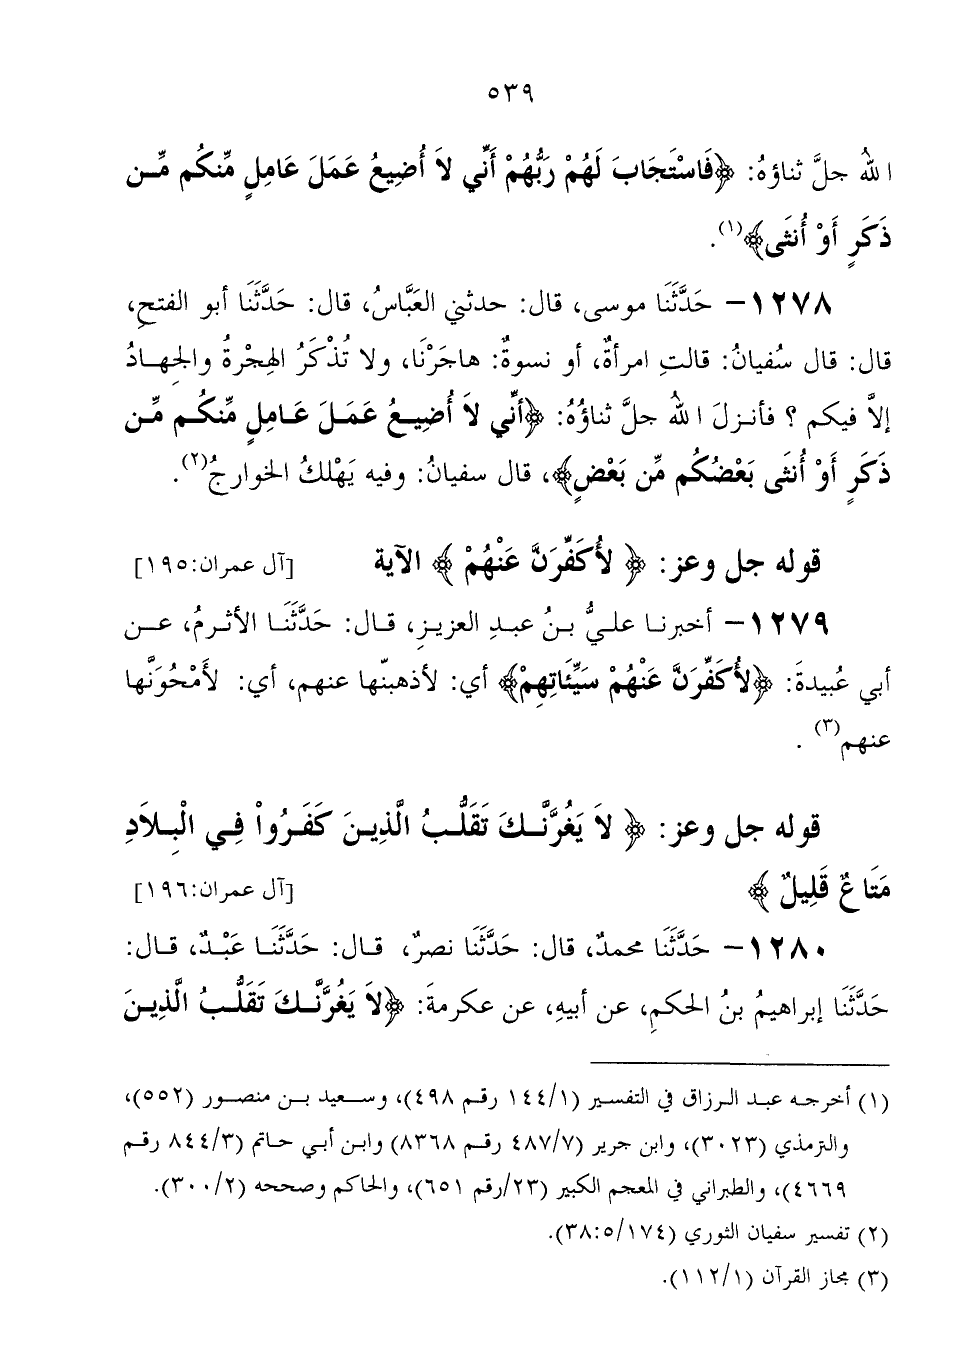 ٥٣٩
الله جلَّ ثناؤهُ: ﴿فَاسْتَجَابَ لَهُمْ رَبُّهُمْ أَنِّي لاَ أُضِيعُ عَمَلَ عَامِلٍ مِّنكُم مِّن
ذَكَرٍ أَوْ أُنثَى﴾(١).
١٢٧٨– حَدَّثَنَا موسى، قال: حدثني العَبَّاسُ، قال: حَدَّثَنَا أبو الفتحِ،
قال: قال سُفيانُ: قالتِ امرأةٌ، أو نسوةٌ: هاجَرْنَا، ولا تُذْكَرُ الهِجْرةُ والجِهادُ
إلاَّ فيكم ؟ فأنزلَ اللهُ جلَّ ثناؤُهُ: ﴿أنِّي لاَ أُضِيعُ عَمَلَ عَامِلٍ مِّنكُم مِّن
ذَكَرٍ أَوْ أُنثَى بَعْضُكُم مِّن بَعْضٍ﴾، قال سفيانُ: وفيه يَهْلكُ الخوارجُ(٢).
قوله جل وعز: ﴿ لأُكَفِّرَنَّ عَنْهُمْ ﴾ الآية [آل عمران:١٩٥]
١٢٧٩– أخبرنا عليُّ بنُ عبدِ العزيزِ، قال: حَدَّثَنَا الأثرمُ، عن
أبي عُبيدةَ: ﴿لأُكَفِّرَنَّ عَنْهُمْ سَيِّئَاتِهِمْ﴾ أي: لأذهبنّها عنهم، أي: لأَمْحُوَنَّها
عنهم(٣) .
قوله جل وعز: ﴿ لاَ يَغُرَّنَّكَ تَقَلُّبُ الَّذِينَ كَفَرُواْ فِي الْبِلاَدِ
مَتَاعٌ قَلِيلٌ ﴾ [آل عمران:١٩٦]
١٢٨٠– حَدَّثَنَا محمدٌ، قال: حَدَّثَنَا نصرٌ، قال: حَدَّثَنَا عَبْدٌ، قال:
حَدَّثَنَا إبراهيمُ بنُ الحكمِ، عن أبيهِ، عن عكرمةَ: ﴿لاَ يَغُرَّنَّكَ تَقَلُّبُ الَّذِينَ
(١) أخرجه عبد الرزاق في التفسير (١٤٤/١ رقم ٤٩٨)، وسعيد بن منصور (٥٥٢)،
والترمذي (٣٠٢٣)، وابن جرير (٤٨٧/٧ رقم ٨٣٦٨) وابن أبي حاتم (٨٤٤/٣ رقم
٤٦٦٩)، والطبراني في المعجم الكبير (٢٣/رقم ٦٥١)، والحاكم وصححه (٣٠٠/٢).
(٢) تفسير سفيان الثوري (٣٨:٥/١٧٤).
(٣) مجاز القرآن (١١٢/١).